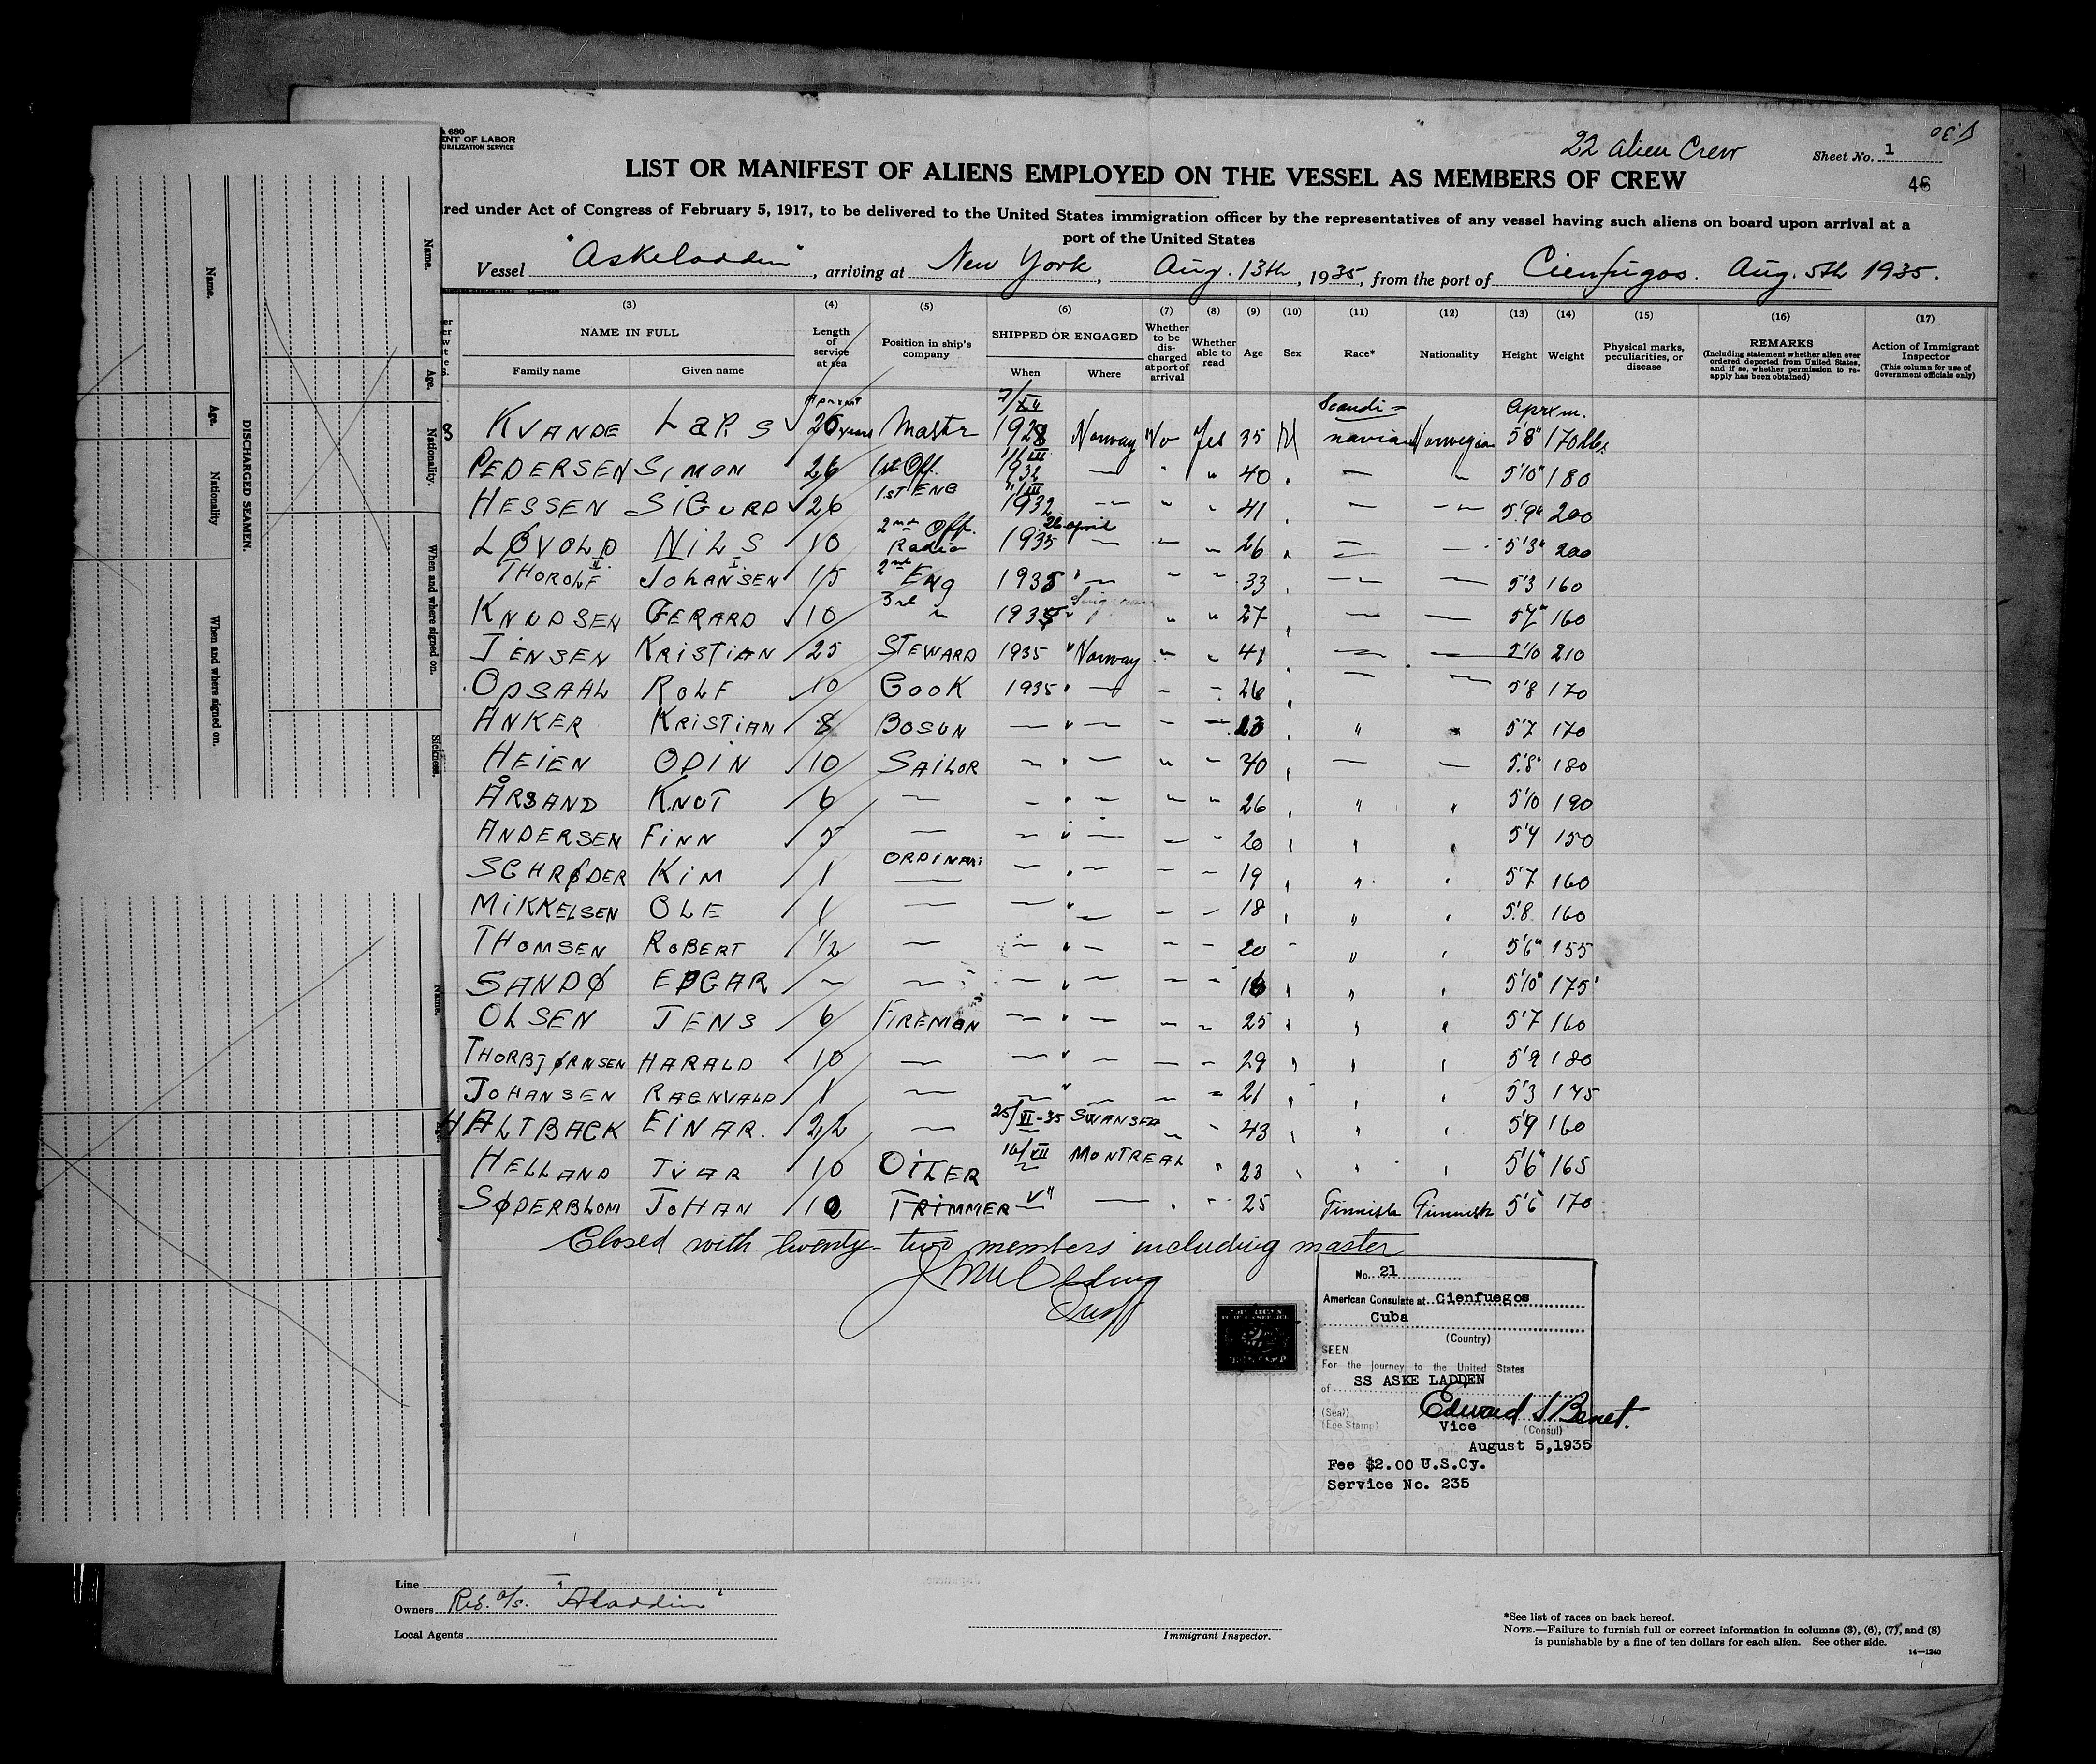 680
ENT OF LABOR
URALIZATION SERVICE
22 Alien Crew
Sheet No. 1
LIST OR MANIFEST OF ALIENS EMPLOYED ON THE VESSEL AS MEMBERS OF CREW
red under Act of Congress of February 5, 1917, to be delivered to the United States immigration officer by the representatives of any vessel having such aliens on board upon arrival at a
port of the United States
Vessel "Askeladden", arriving at New York, Aug. 13th, 1935, from the port of Cienfugos. Aug. 5th 1935.
(3) (4) (5) (6) (7) (8) (9) (10) (11) (12) (13) (14) (15) (16) (17)
NAME IN FULL Length of service at sea Position in ship's company SHIPPED OR ENGAGED Whether to be discharged at port of arrival Whether able to read Age Sex Race* Nationality Height Weight Physical marks, peculiarities, or disease REMARKS (Including statement whether alien ever ordered deported from United States, and if so, whether permission to reapply has been obtained) Action of Immigrant Inspector (This column for use of Government officials only)
Family name Given name When Where
7/XII Scandi= Aprxm.
KVANDE LARS 26 years Master 1928 Norway No Yes 35 M navian Norwegian 5'8" 170 lbs.
PEDERSEN SIMON 26 1st Off. 1932 — " " 40 — " 5'10" 180
HESSEN SIGURD 26 1ST ENG 1932 — " " 41 — — 5'9" 200
LØVOLD NILS 10 2nd Off. Radio 1935 26 april — " " 26 — — 5'3" 200
THOROLF II JOHANSEN I 15 2nd Eng 1935 " — " " 33 — — 5'3 160
KNUDSEN GERARD 10 3rd " 1935 " " " 27 — — 160
JENSEN KRISTIAN 25 STEWARD 1935 " Norway " " 41 — — 5'10 210
OPSAAL ROLF 10 COOK 1935 " — — — 26 — — 5'8 170
ANKER KRISTIAN 8 BOSUN — " — — — 23 " " 5'7 170
HEIEN ODIN 10 SAILOR — " — " — 30 — — 5'8" 180
ÅRSAND KNUT 6 — — " — — " 26 " " 5'10 190
ANDERSEN FINN 5 — — " — — " 20 " " 5'4 150
SCHRØDER KIM 1 ORDINARI — — " — — — 19 " " 5'7 160
MIKKELSEN OLE 1 — — " — — — 18 " " 5'8 160
THOMSEN ROBERT 1/2 — — " — — — 20 " " 5'6" 155
SANDØ EDGAR — — — " — — — " " 5'10" 175
OLSEN JENS 6 FIREMAN — " — — — 25 " " 5'7 160
THORBJØRNSEN HARALD 10 — — " — — — 29 " " 5'9 180
JOHANSEN RAGNVALD 1 — — " — — — 21 " " 5'3 145
HALTBACK EINAR. 22 — 25/VI-35 SWANSEA — " 43 " " 5'9 160
HELLAND IVAR 10 OILER 16/VII MONTREAL " 23 " " 5'6" 165
SØDERBLOM JOHAN 10 TRIMMER " — " " 25 Finnish Finnish 5'6 170
Closed with twenty-two members including master
No. 21
American Consulate at Cienfuegos
Cuba
(Country)
SEEN
For the journey to the United States
of SS ASKE LADDEN
(Seal)
(Fee Stamp)
Edward S Benet.
Vice (Consul)
August 5,1935
Fee $2.00 U.S.Cy.
Service No. 235
Line
Owners "Aladdin"
Local Agents
Immigrant Inspector.
*See list of races on back hereof.
NOTE.—Failure to furnish full or correct information in columns (3), (6), (7), and (8)
is punishable by a fine of ten dollars for each alien. See other side.
14—1240
DISCHARGED SEAMEN.
Name.
Age.
Nationality
When and where signed on.
Name.
Age.
Nationality.
When and where signed on.
Sickness.
Name.